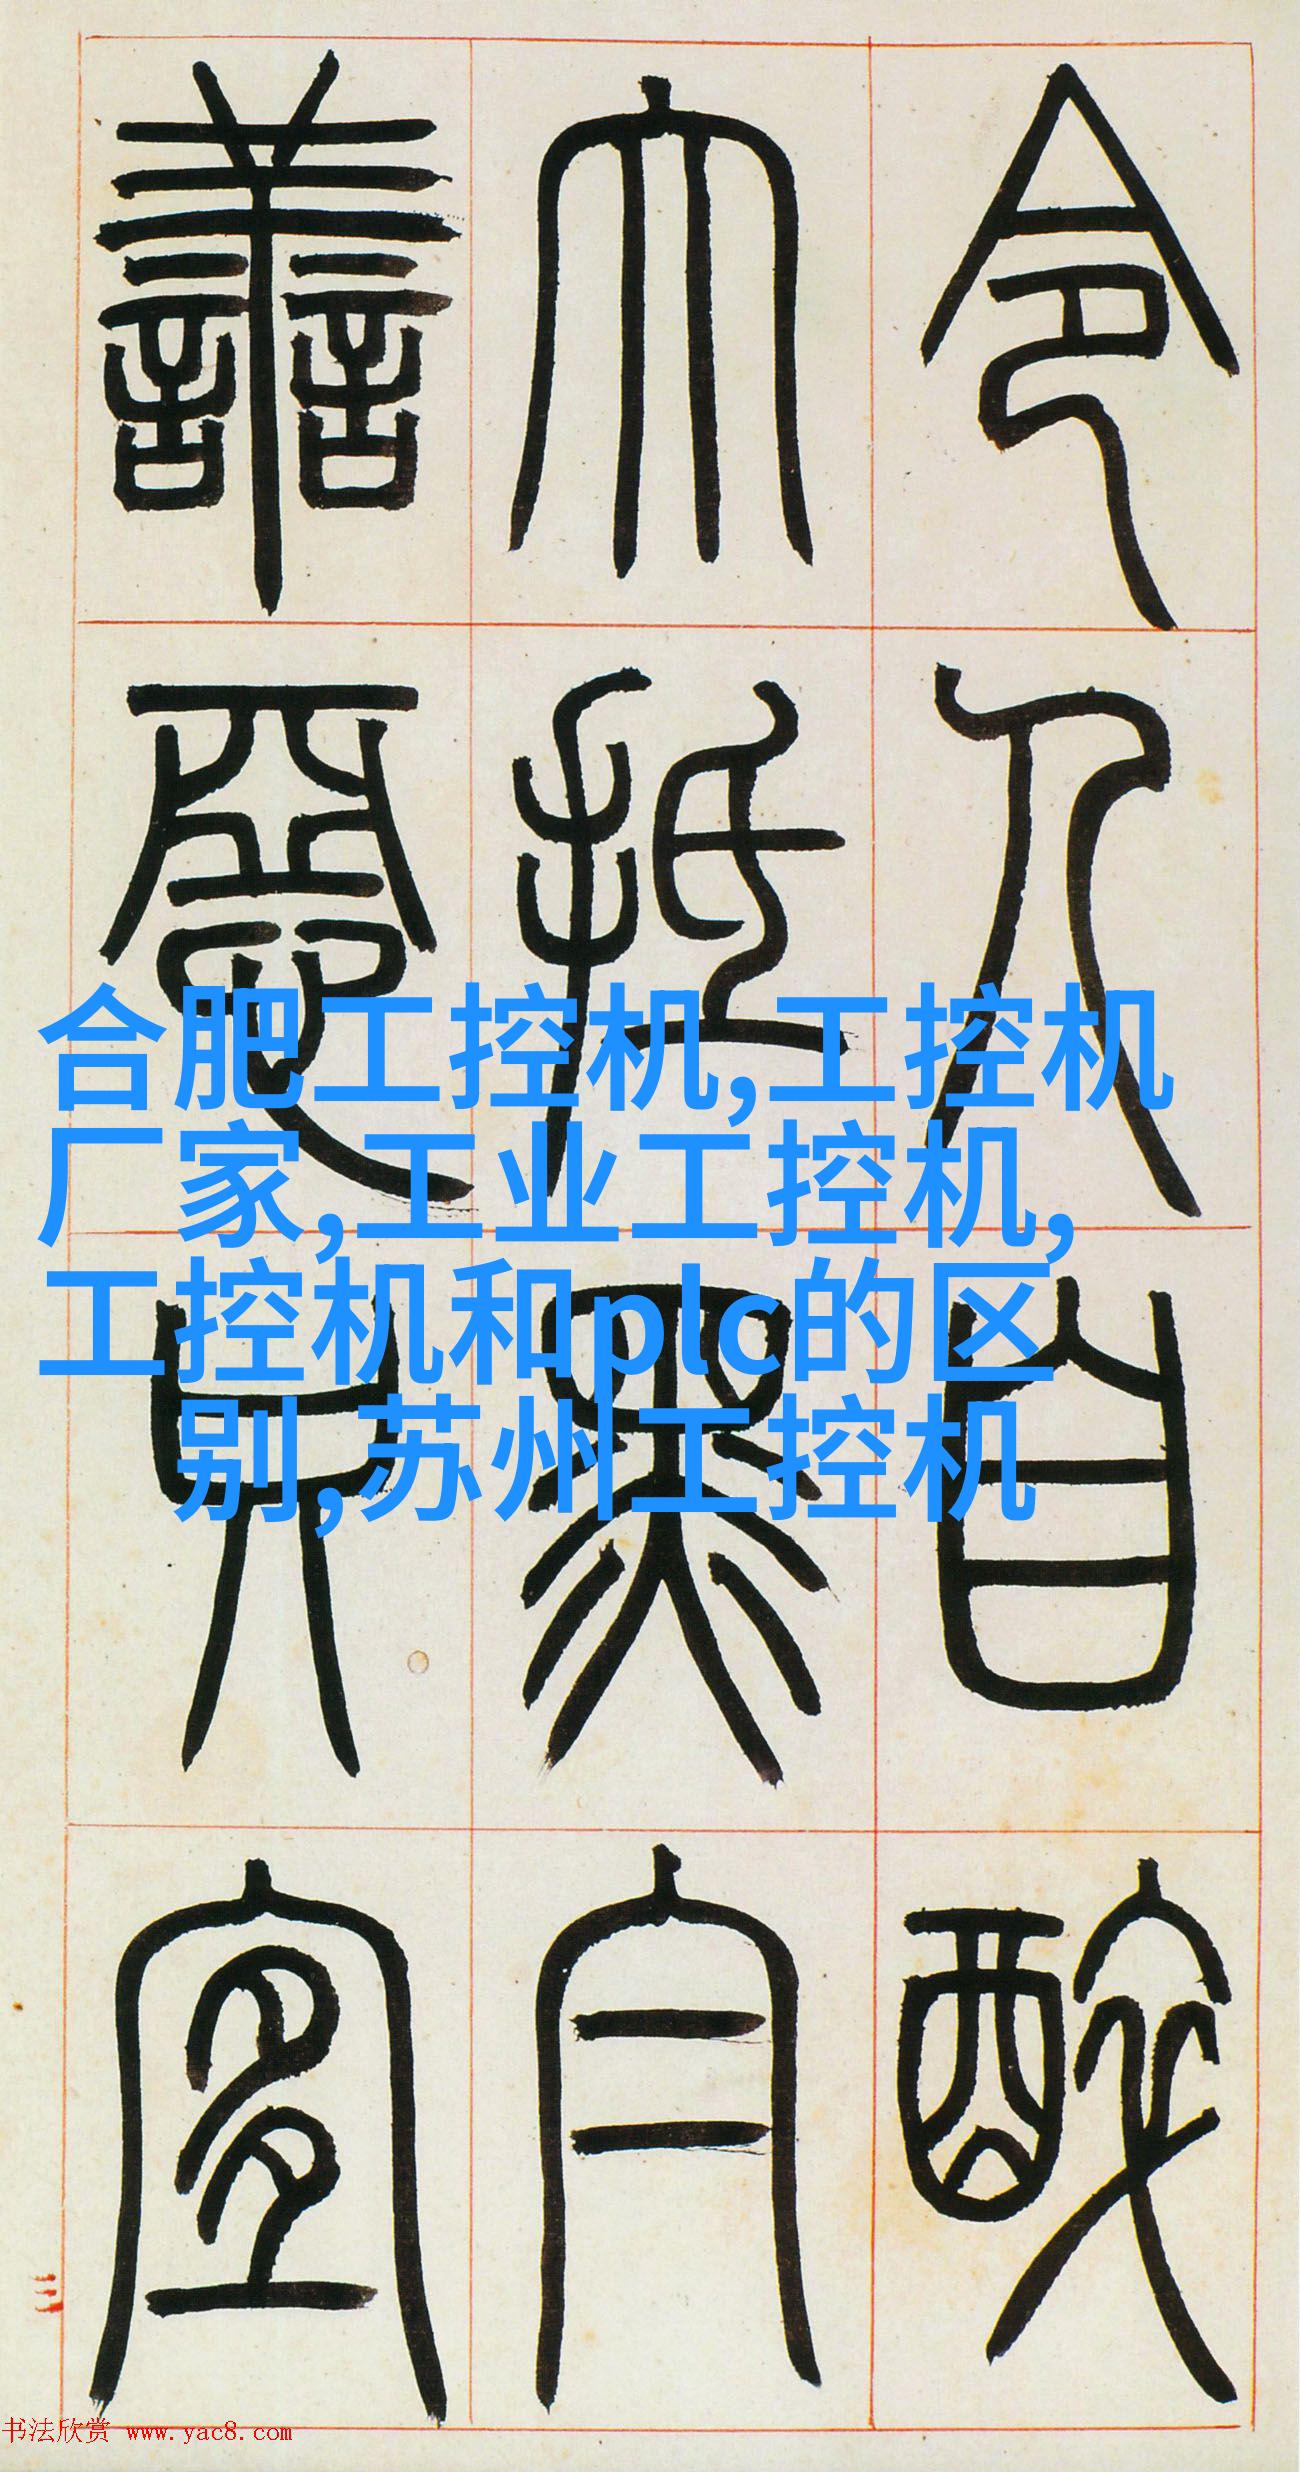 令人自醉
大抵月
善宜
合肥工控机,工控机
厂家,工业工控机,
工控机和plc的区
别,苏州工控机
书法欣赏 www.yac8.com